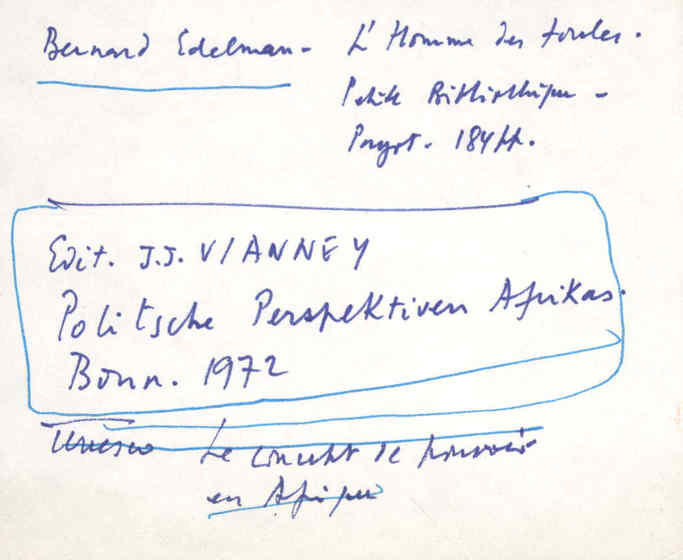 Bernard Edelman - L'Homme des foules.
Petite Bibliothèque -
Payot. 184 pp.
Edit. J.J. VIANNEY
Politsche Perspektiven Afrikas.
Bonn. 1972
Unesco Le concept de pouvoir
en Afrique